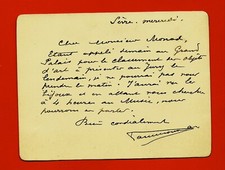 Sèvres, mercredi.
Cher Monsieur Monod,
Etant appelé demain au Grand
Palais pour le classement des objets
d'art à présenter au Jury le
lendemain, je ne pourrai pas vous
prendre le matin. J'aurai vu les
bijoux et en allant vous chercher
à 4 heures au Musée, nous
pourrons en parler.
Bien cordialement